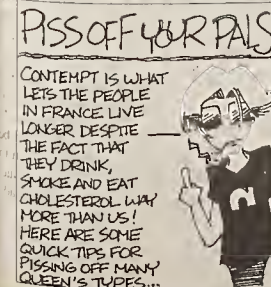 PISS OFF YOUR PALS
CONTEMPT IS WHAT
LETS THE PEOPLE
IN FRANCE LIVE
LONGER DESPITE
THE FACT THAT
THEY DRINK,
SMOKE AND EAT
CHOLESTEROL WAY
MORE THAN US!
HERE ARE SOME
QUICK TIPS FOR
PISSING OFF MANY
QUEEN'S TYPES...